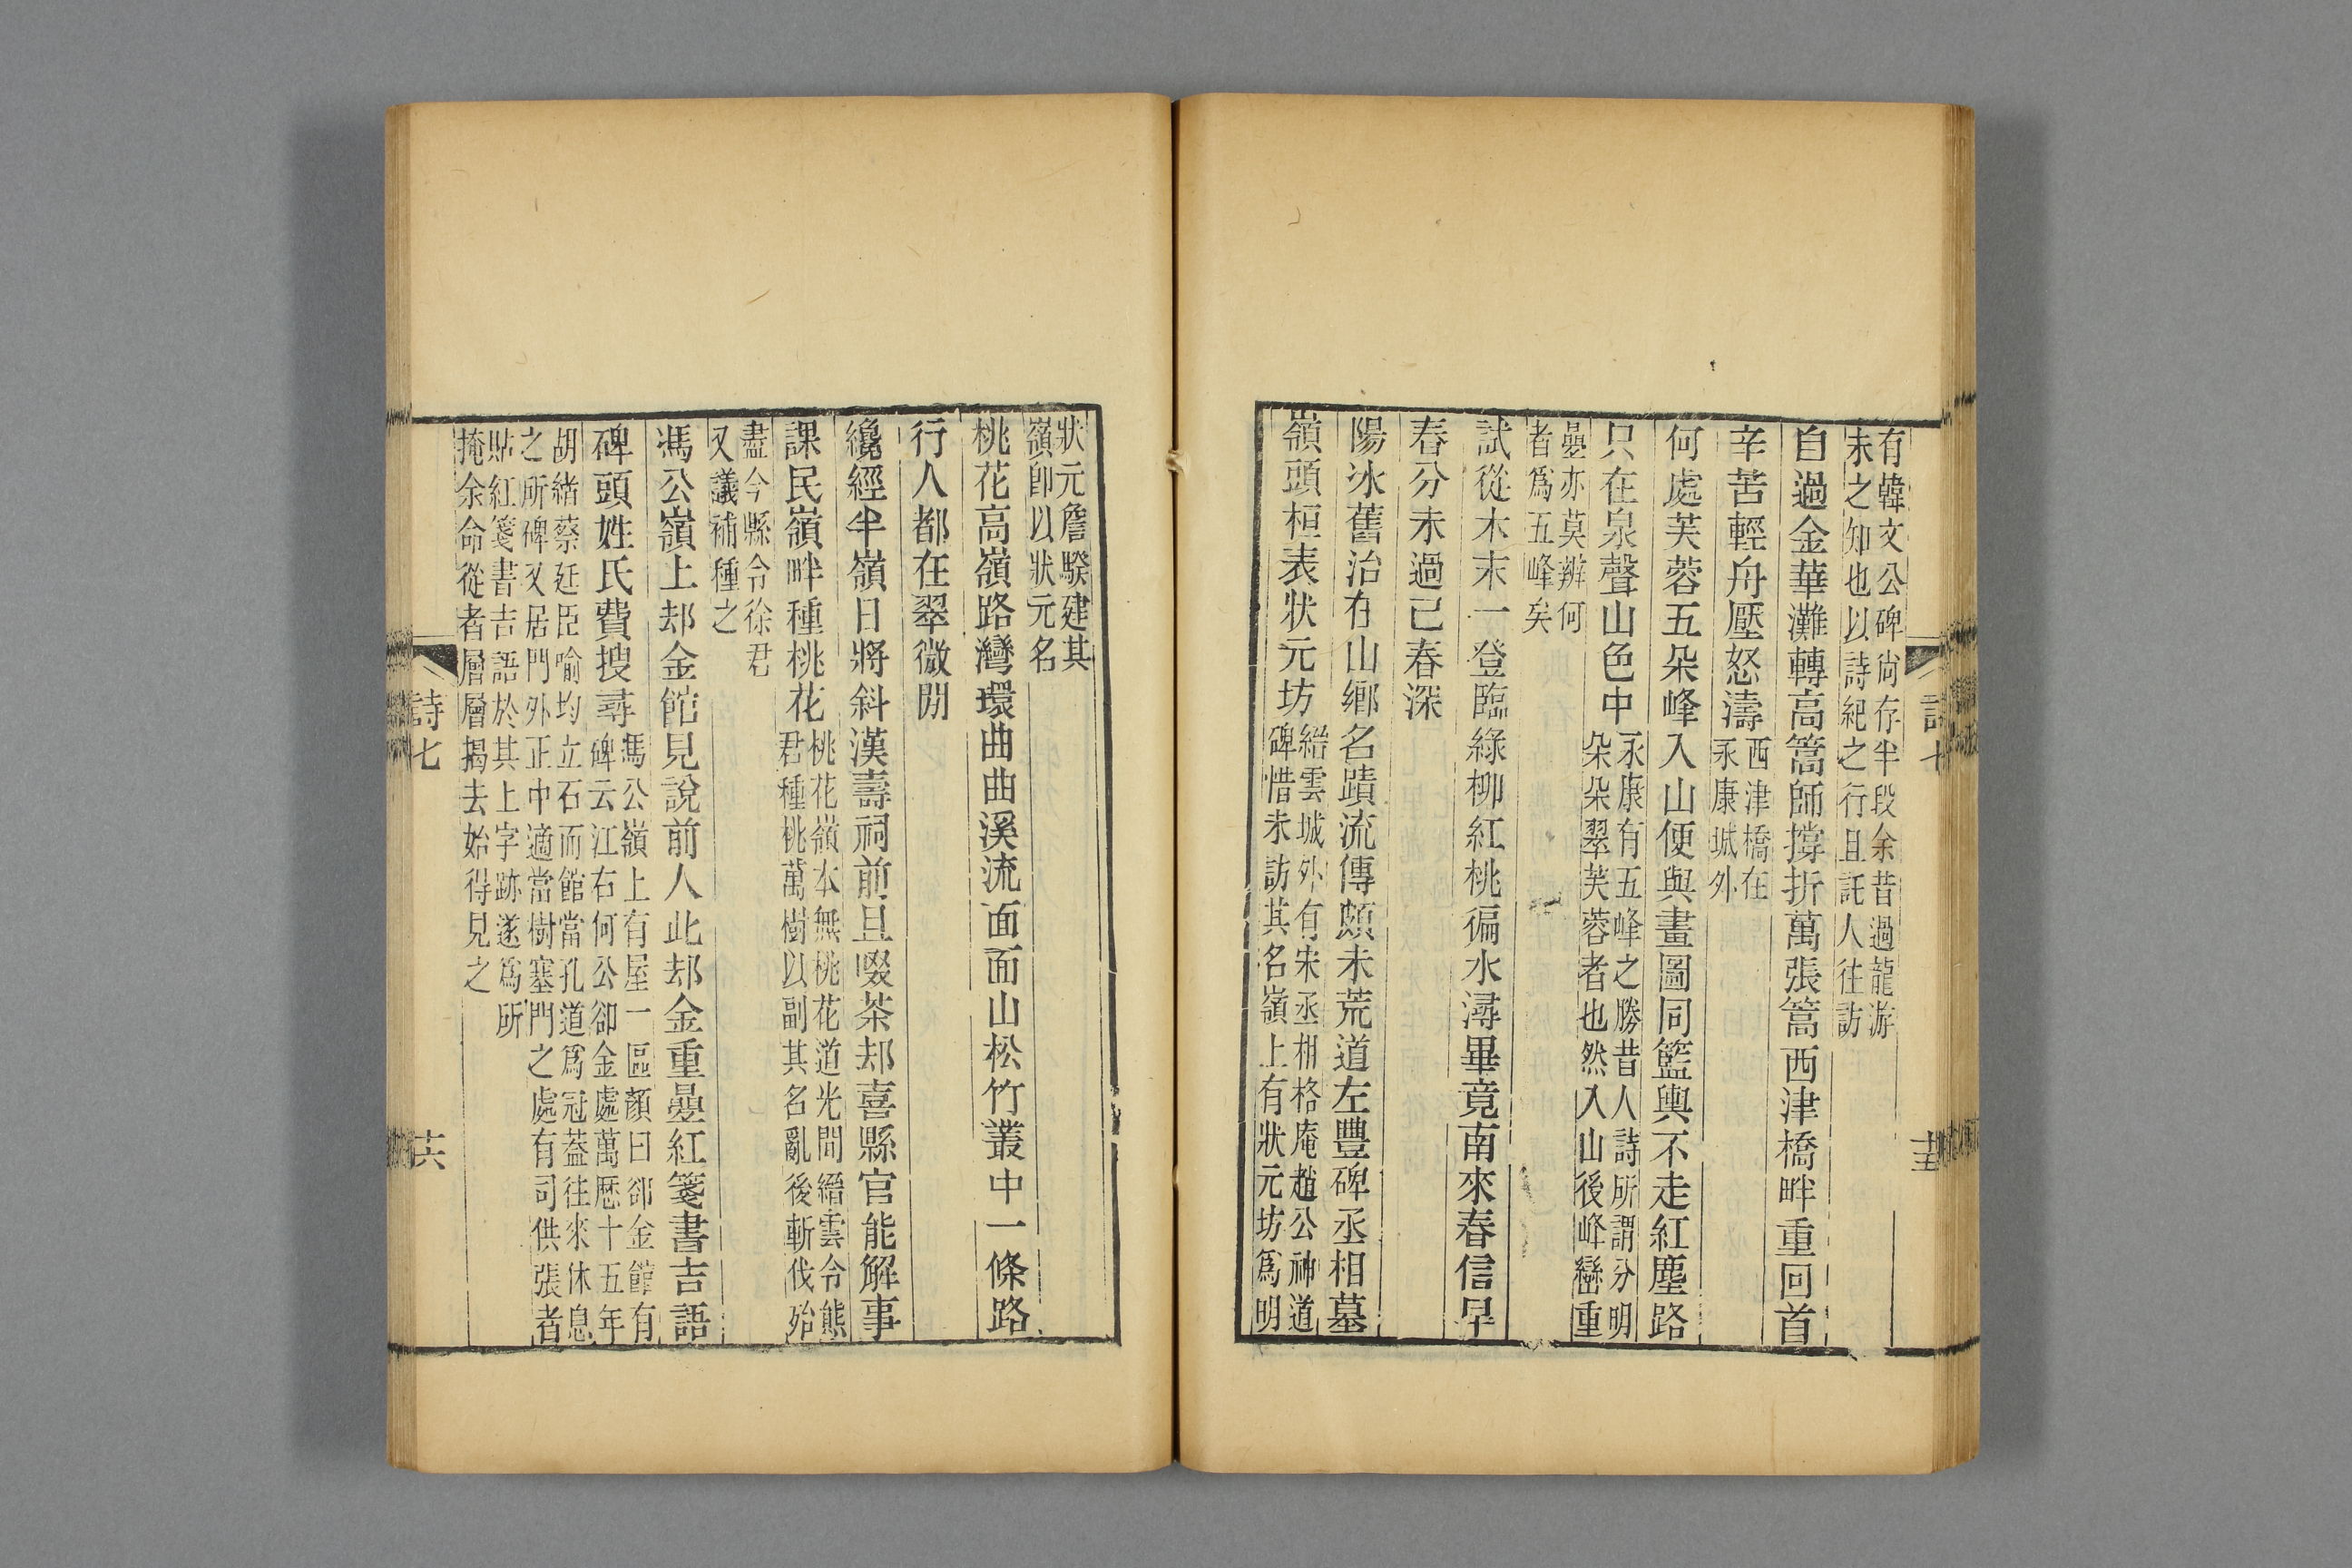 有韓文公碑尙存半段余昔過龍游
未之知也以詩紀之行且託人往訪
自過金華灘轉高篙師撐折萬張篙西津橋畔重回首
辛苦輕舟壓怒濤西津橋在
永康城外
何處芙蓉五朵峰入山便與畫圖同籃輿不走紅塵路
只在泉聲山色中永康有五峰之勝昔人詩所謂分明
朵朵翠芙蓉者也然入山後峰巒重
曡亦莫辨何
者爲五峰矣
試從木末一登臨綠柳紅桃徧水潯畢竟南來春信早
春分未過己春深
陽冰舊治在山鄉名蹟流傳頗未荒道左豐碑丞相墓
嶺頭桓表狀元坊縉雲城外有宋丞相格庵趙公神道
碑惜未訪其名嶺上有狀元坊爲明
詩七
十五
狀元詹騤建其
嶺卽以狀元名
桃花高嶺路灣環曲曲溪流面面山松竹叢中一條路
行人都在翠微閒
纔經半嶺日將斜漢壽祠前且啜茶却喜縣官能解事
課民嶺畔種桃花桃花嶺本無桃花道光間縉雲令熊
君種桃萬樹以副其名亂後斬伐殆
盡今縣令徐君
又議補種之
馮公嶺上却金館見說前人此却金重曡紅箋書吉語
碑頭姓氏費搜尋馮公嶺上有屋一區顏曰郤金館有
碑云江右何公卻金處萬厯十五年
胡緒蔡廷臣喻均立石而館當孔道爲冠葢往來休息
之所碑又居門外正中適當樹塞門之處有司供張者
貼紅箋書吉語於其上字跡遂爲所
掩余命從者層層揭去始得見之
詩七
十六